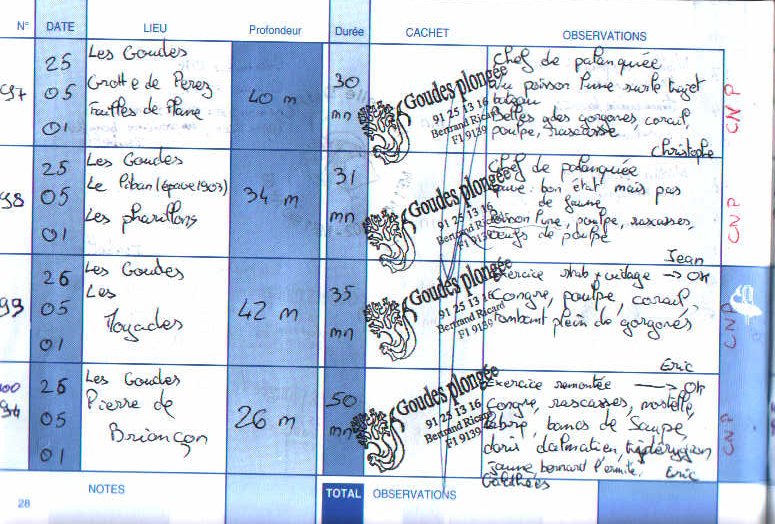 N° DATE LIEU Profondeur Durée CACHET OBSERVATIONS
97
25
05
01
Les Goudes
Grotte de Perez
Failles de Plane
40 m
30
mn
Goudes plongée
91 25 13 16
Bertrand Ricard
F1 9139
Chef de palanquée
vu poisson lune sur le trajet
bateau
Belles gdes gorgones, corail,
poulpe, rascasse
Christophe
CNP
98
25
05
01
Les Goudes
Le Liban (épave 1903)
Les pharillons
34 m
31
mn
Goudes plongée
91 25 13 16
Bertrand Ricard
F1 9139
Chef de palanquée
épave bon état mais pas
de faune
poisson lune, poulpe, rascasses,
oeufs de poulpe
Jean
CNP
99
26
05
01
Les Goudes
Les
Moyades
42 m
35
mn
Goudes plongée
91 25 13 16
Bertrand Ricard
F1 9139
Exercice stab + vidage → OK
Congre, poulpe, corail,
tombant plein de gorgones
Eric
CNP
100
94
26
05
01
Les Goudes
Pierre de
Briançon
26 m
50
mn
Goudes plongée
91 25 13 16
Bertrand Ricard
F1 9139
Exercice remontée → OK
Congre, rascasses, mostelle,
labre, bancs de Saupe,
doris dalmatien, triptérygion
jaune, bernard l'ermite.
Galathées
Eric
CNP
28
NOTES
TOTAL
OBSERVATIONS